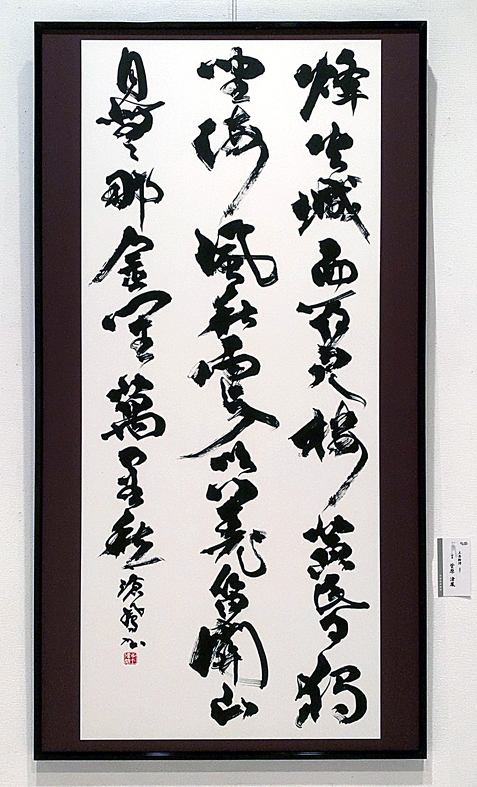 烽火城西百尺樓黄昏獨
坐海風秋更吹羌笛關山
月無那金閨萬里愁